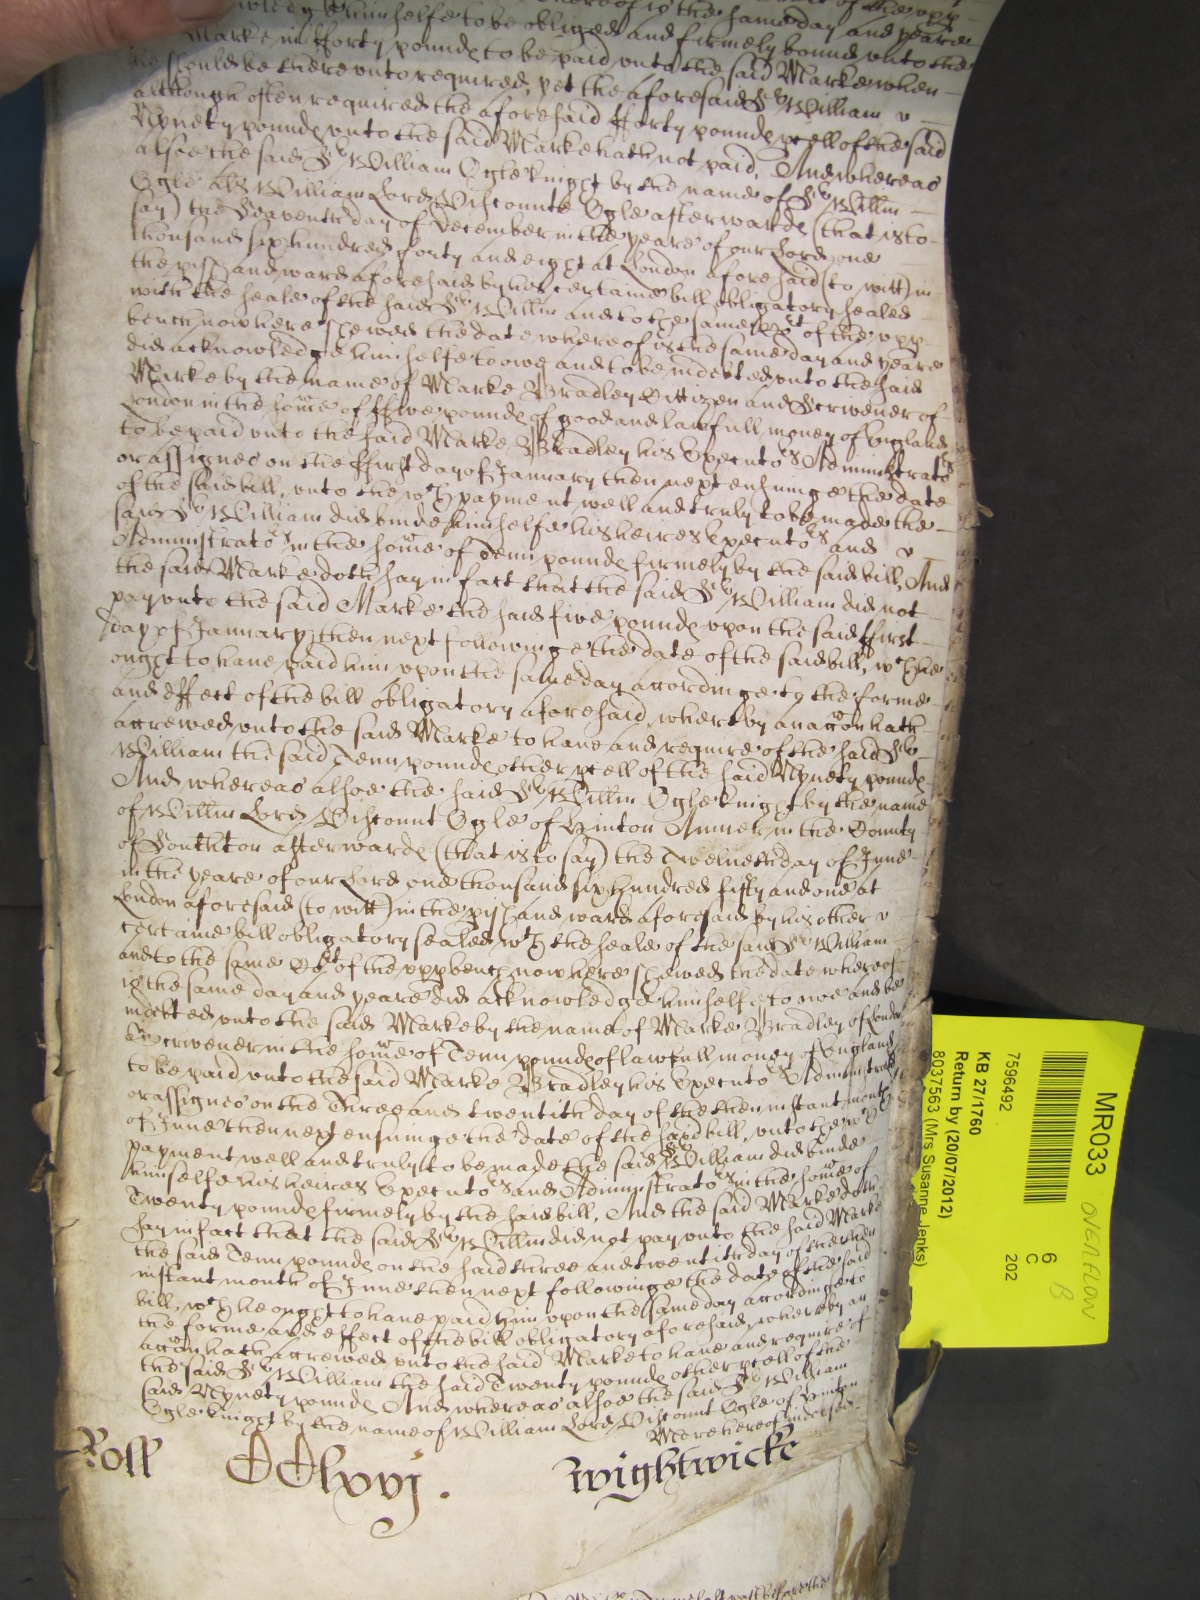 knowledge himselfe to be obliged and firmely bound unto the
Marke in fforty pounde to be paid unto the said Marke when
he should be thereunto required, yet the aforesaid Sr William
although often required the aforesaid fforty pounde pcell of the said
Nynety pounde unto the said Marke hath not paid, And whereas
alsoe the said Sr William Ogle knight by the name of Sr Willm
Ogle als William Lord Viscounte Ogle afterwarde (that is to
say) the Seaventh day of December in the yeare of our Lord one
thousand six hundred forty and eight at London aforesaid (to witt) in
the pish and ward aforesaid by his certaine bill obligatory sealed
with the seale of the said Sr Willm and to the same Cort of the upp
bench now here shewed the date whereof is the same day and yeare
did acknowledge himselfe to owe and to be indebted unto the said
Marke by the name of Marke Bradley Cittizen and Scrivener of
London in the some of ffive pounde of good and lawfull money of England
to be paid unto the said Marke Bradley his Executors Administrators
or assignes on the ffirst day of January then next ensuinge the date
of the said bill, unto the wch payment well and truly to be made the
said Sr William did binde himselfe his heires Executors and
Administrators in the some of Tenn pounde firmely by the said bill, And
the said Marke doth say in fact that the said Sr William did not
pay unto the said Marke the said five pounde upon the said ffirst
day of January then next followinge the date of the said bill, wch he
ought to have paid him upon the same day accordinge to the forme
and effect of the bill obligatory aforesaid, whereby an accon hath
accrewed unto the said Marke to have and require of the said Sr
William the said Tenn pounde other pcell of the said Nynety pounde
And whereas alsoe the said Sr Willm Ogle knight by the name
of Willm Lord Viscount Ogle of Hinton Amner in the County
of Southton afterwarde (that is to say) the Twelveth day of June
in the yeare of our Lord one thousand six hundred fifty and one at
London aforesaid (to witt) in the pish and ward aforesaid by his other
certaine bill obligatory sealed wth the seale of the said Sr William
and to the same Cort of the upp bench now here shewed the date whereof
is the same day and yeare did acknowledge himselfe to owe and be
indebted unto the said Marke by the name of Marke Bradley of London
Scrivener in the some of Tenn pounde of lawfull money of England
to be paid unto the said Marke Bradley his Executors Administrators
or assignes on the Three and twentith day of the then instant month
of June then next ensuinge the date of the said bill, unto the wch
payment well and truly to be made the said Sr William did binde
himselfe his heires Executors and Administrators in the some of
Twenty pounde firmely by the said bill, And the said Marke doth
say in fact that the said Sr Willm did not pay unto the said Marke
the said Tenn pounde on the said three and twentith day of the then
instant month of June then next followinge the date of the said
bill, wch he ought to have paid him upon the same day accordinge to
the forme and effect of the bill obligatory aforesaid, whereby an
accon hath accrewed unto the said Marke to have and require of
the said Sr William the said Twenty pounde other pcell of the
said Nynety pounde And whereas alsoe the said Sr William
Ogle knight by the name of William Lord Viscount Ogle of Hinton
More hereof indorsed
Roll CClxvj. Wightwicke
MR033 OVERFLOW
B
6
C
202
7596492
KB 27/1760
Return by (20/07/2012)
8037563 (Mrs Susanne Jenks)